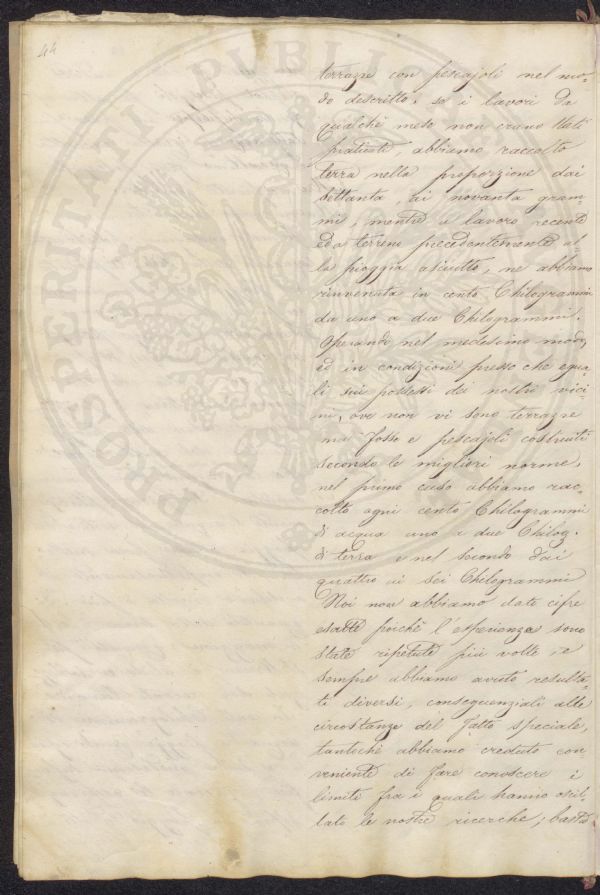 44
terrazze con pescajoli nel mo-
do descritto, se i lavori da
qualche mese non erano stati
praticati, abbiamo raccolto
terra nella proporzione dai
settanta, ai novanta gram-
mi, mentre a lavoro recente
ed a terreno precedentemente al
la pioggia asciutto, ne abbiamo
rinvenuta in cento Chilogrammi
da uno a due Chilogrammi.
Operando nel medesimo modo,
ed in condizioni presso che egua
li sui possessi dei nostri vici-
ni, ove non vi sono terrazze
ma fosse e pescajoli costruiti
secondo le migliori norme,
nel primo caso abbiamo rac-
colto ogni cento Chilogrammi
di acqua uno a due Chilog.
di terra e nel secondo dai
quattro ai sei Chilogrammi
Noi non abbiamo dato cifre
esatte poichè l'esperienze sono
state ripetute più volte, e
sempre abbiamo avuto resulta-
ti diversi, consequenziali alle
circostanze del fatto speciale,
tantochè abbiamo creduto con
veniente di fare conoscere i
limiti fra i quali hanno oscil-
lato le nostre ricerche; basti
PROPIETATI PUBLICAE